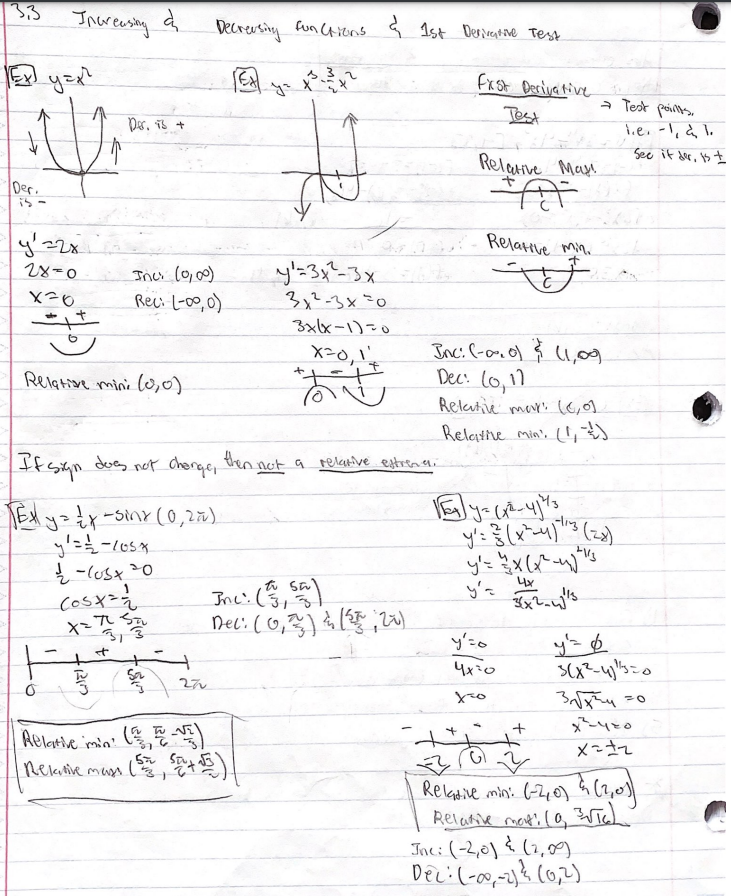 3.3 Increasing & Decreasing Functions & 1st Derivative Test
Ex y=x²
Der. is +
Der.
is -
y'=2x
2x=0
x=0
- +
0
Inc: (0,∞)
Dec: (-∞,0)
Relative min: (0,0)
Ex y= x³-3/2x²
1
y'=3x²-3x
3x²-3x=0
3x(x-1)=0
x=0,1
+ - +
0 1
First Derivative
Test
→ Test points.
i.e. -1, & 1.
See if der. is ±
Relative Max.
+ -
c
Relative min.
- +
c
Inc: (-∞,0) & (1,∞)
Dec: (0,1)
Relative max: (0,0)
Relative min: (1,-1/2)
If sign does not change, then not a relative extrema.
Ex y=1/2x-sinx (0,2π)
y'=1/2-cosx
1/2-cosx=0
cosx=1/2
x=π/3, 5π/3
Inc: (π/3, 5π/3)
Dec: (0,π/3) & (5π/3, 2π)
- + -
0 π/3 5π/3 2π
Relative min: (π/3, π/6-√3/2)
Relative max: (5π/3, 5π/6+√3/2)
Ex y=(x²-4)^2/3
y'=2/3(x²-4)^-1/3 (2x)
y'=4/3x(x²-4)^-1/3
y'= 4x/3(x²-4)^1/3
y'=0
4x=0
x=0
y'=ø
3(x²-4)^1/3=0
3√x²-4 =0
x²-4=0
x=±2
- + - +
-2 0 2
Relative min: (-2,0) & (2,0)
Relative max: (0, ³√16)
Inc: (-2,0) & (2,∞)
Dec: (-∞,-2) & (0,2)